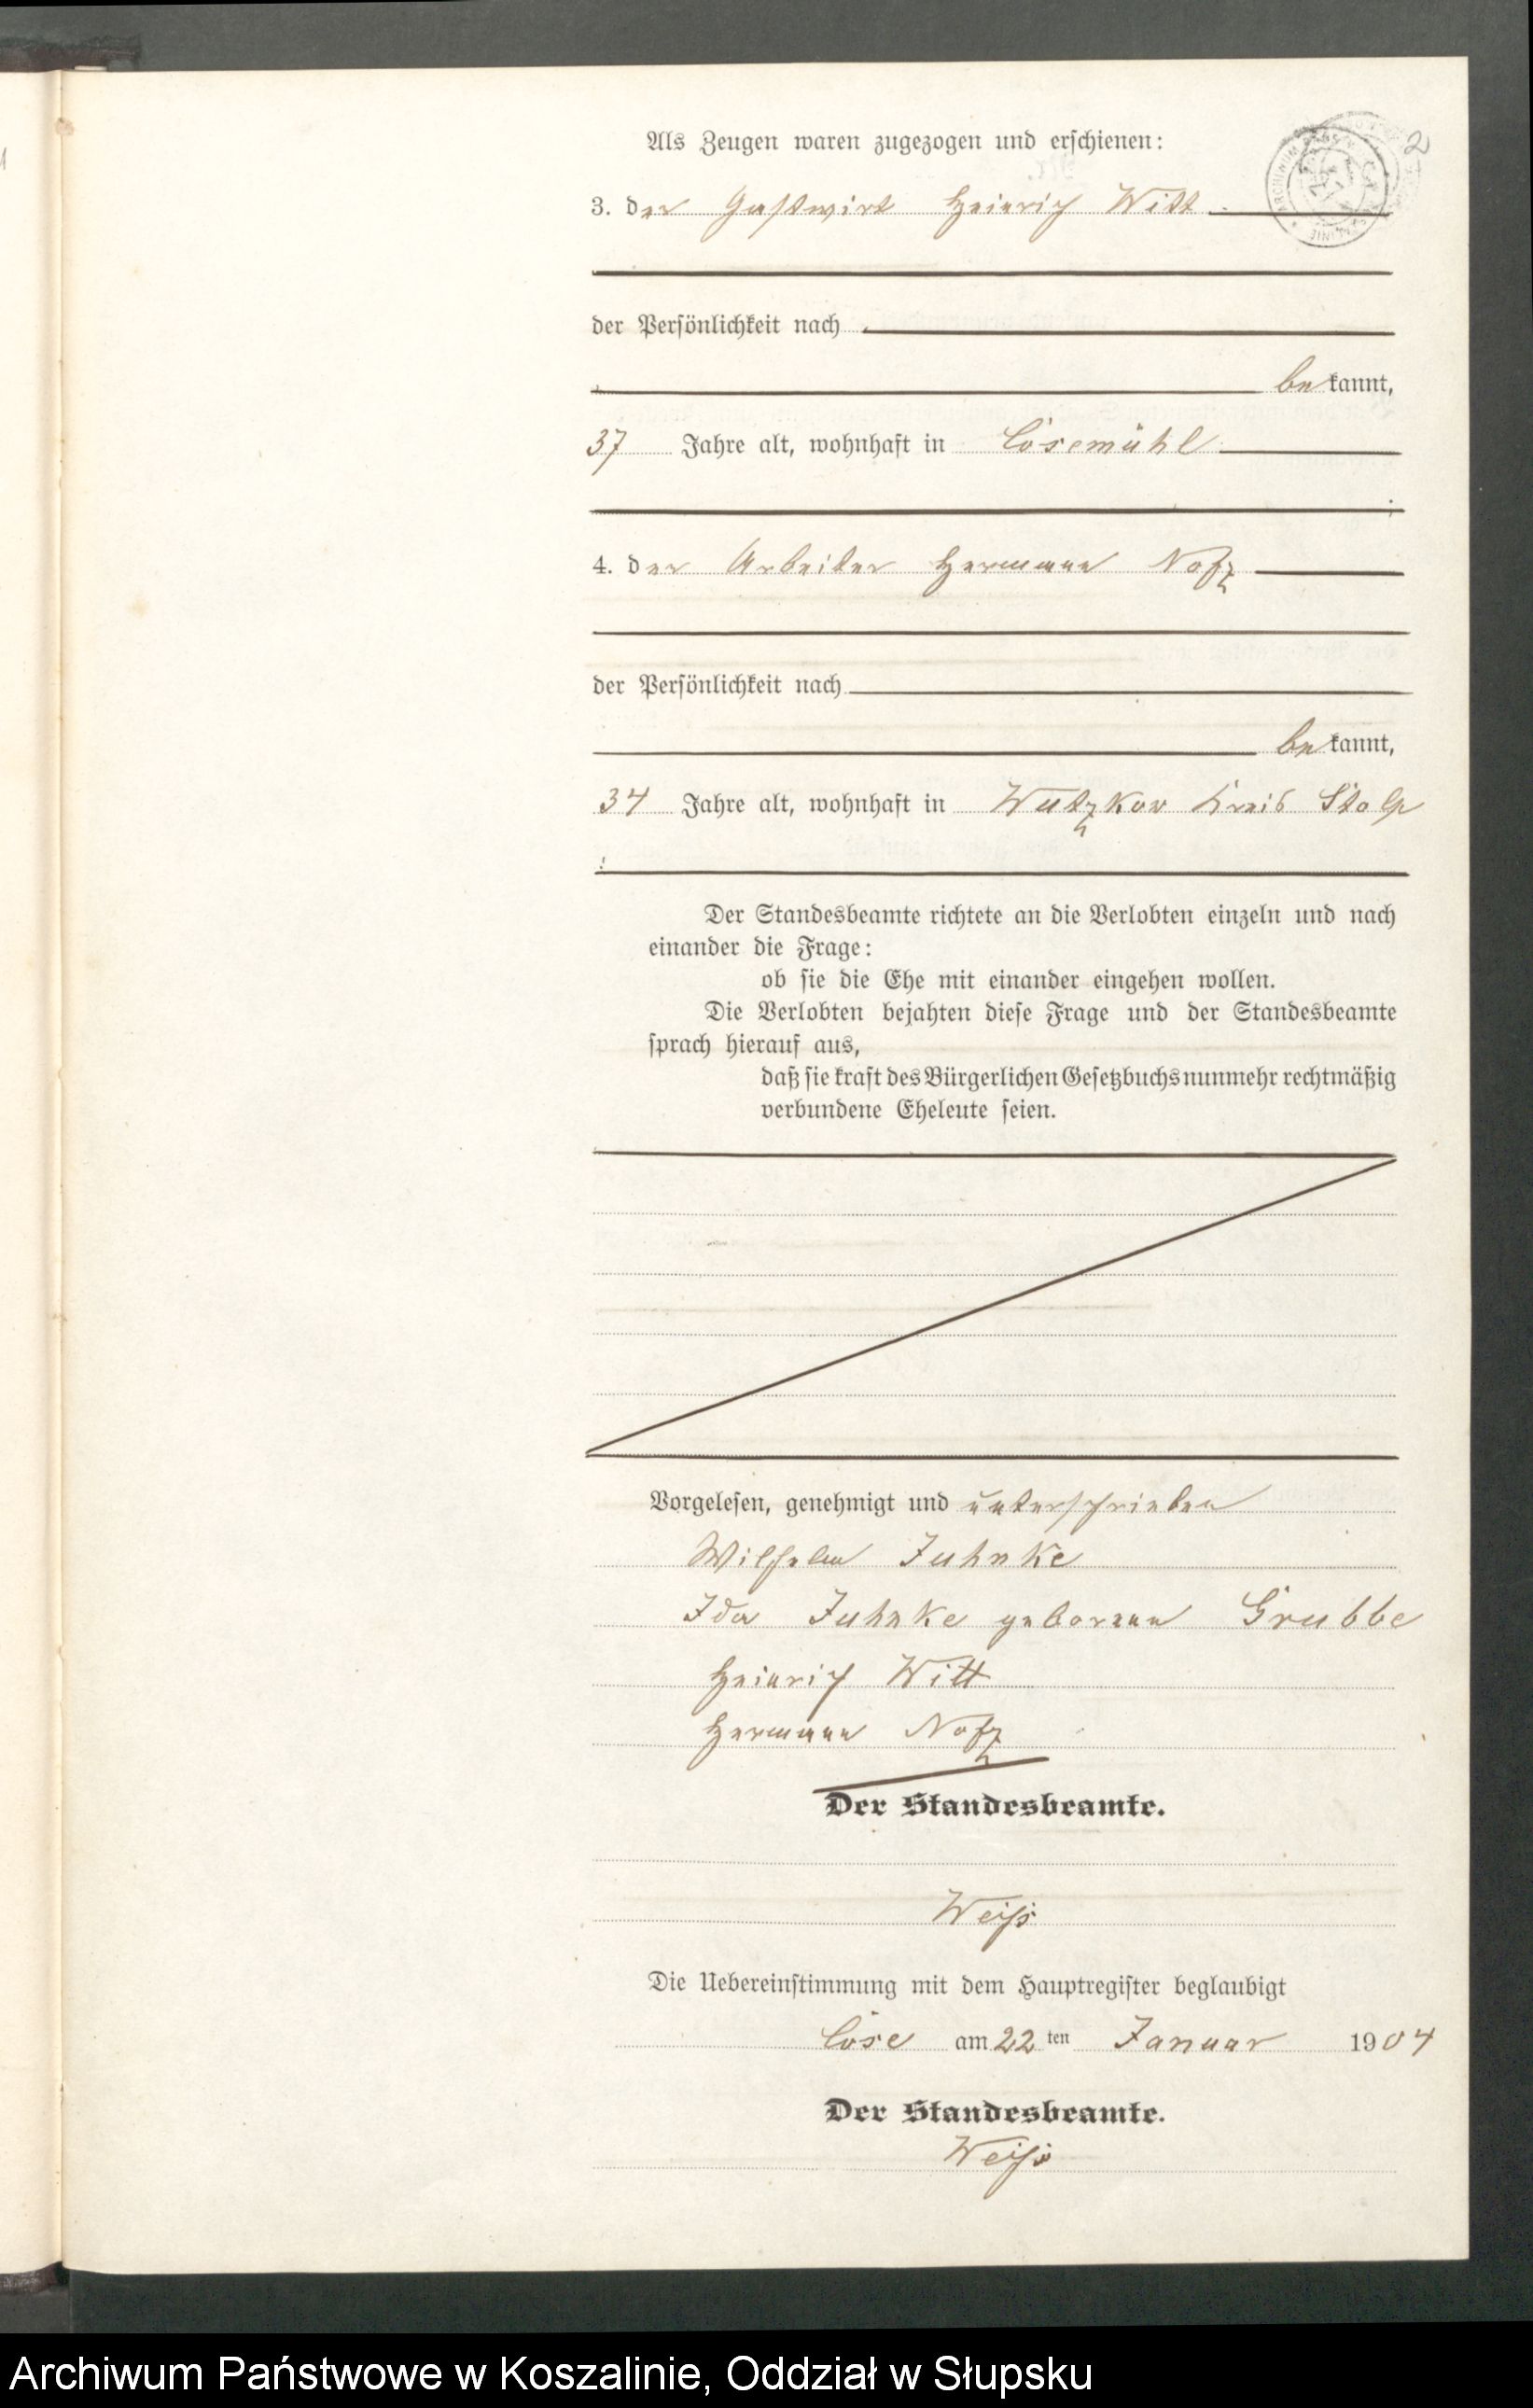 2
Als Zeugen waren zugezogen und erschienen:
3. der Gastwirt Heinrich Witt
der Persönlichkeit nach
bekannt,
37 Jahre alt, wohnhaft in Cösemühl
;
4. der Arbeiter Hermann Notz
der Persönlichkeit nach
bekannt,
34 Jahre alt, wohnhaft in Wutzkow Kreis Stolp
Der Standesbeamte richtete an die Verlobten einzeln und nach
einander die Frage:
ob sie die Ehe mit einander eingehen wollen.
Die Verlobten bejahten diese Frage und der Standesbeamte
sprach hierauf aus,
daß sie kraft des Bürgerlichen Gesetzbuchs nunmehr rechtmäßig
verbundene Eheleute seien.
Vorgelesen, genehmigt und unterschrieben
Wilhelm Juhnke
Ida Juhnke geborene Grubbe
Heinrich Witt
Hermann Notz
Der Standesbeamte.
Weiß
Die Uebereinstimmung mit dem Hauptregister beglaubigt
Cöse am 22 ten Januar 1904
Der Standesbeamte.
Weiß
Archiwum Państwowe w Koszalinie, Oddział w Słupsku